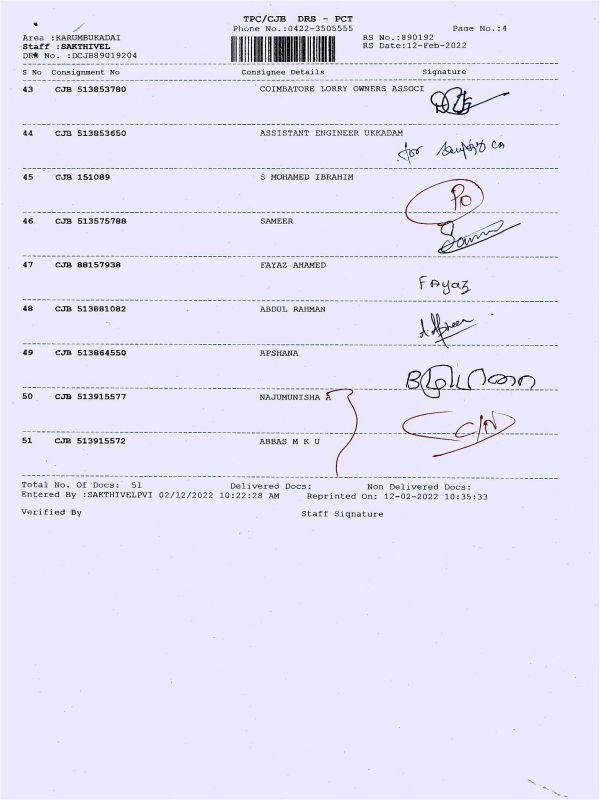 TPC/CJB DRS - PCT
Phone No.:0422-3505555 Page No.:4
Area :KARUMBUKADAI RS No.:890192
Staff :SAKTHIVEL RS Date:12-Feb-2022
DRS No. :DCJB89019204
S No Consignment No Consignee Details Signature
43 CJB 513853780 COIMBATORE LORRY OWNERS ASSOCI
44 CJB 513853650 ASSISTANT ENGINEER UKKADAM
for
45 CJB 151089 S MOHAMED IBRAHIM
46 CJB 513575788 SAMEER
47 CJB 88157938 FAYAZ AHAMED
FAyaz
48 CJB 513881082 ABDUL RAHMAN
49 CJB 513864550 APSHANA
50 CJB 513915577 NAJUMUNISHA A
C/N
51 CJB 513915572 ABBAS M K U
Total No. Of Docs: 51 Delivered Docs: Non Delivered Docs:
Entered By :SAKTHIVELPVI 02/12/2022 10:22:28 AM Reprinted On: 12-02-2022 10:35:33
Verified By Staff Signature